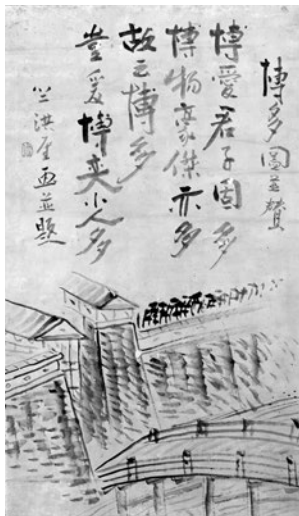 博多圖並賛
博愛君子固多
博物豪傑亦多
故云博多
豈爰博奕小人多
竺洪厓画並題